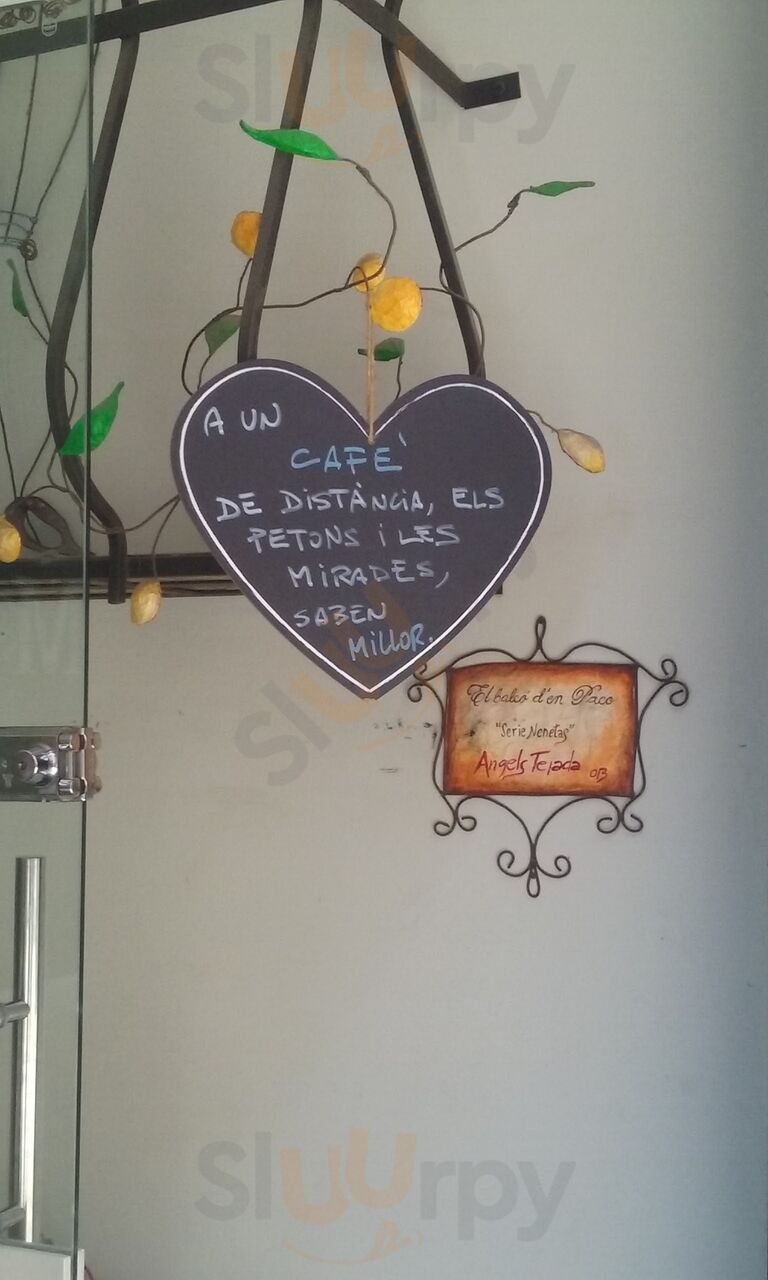 Sluurpy
A UN
CAFE`
DE DISTÀNCIA, ELS
PETONS I LES
MIRADES,
SABEN
MILLOR.
El balcó d'en Paco
"Serie Nenetas"
Angels Tejada
Sluurpy
Sluurpy